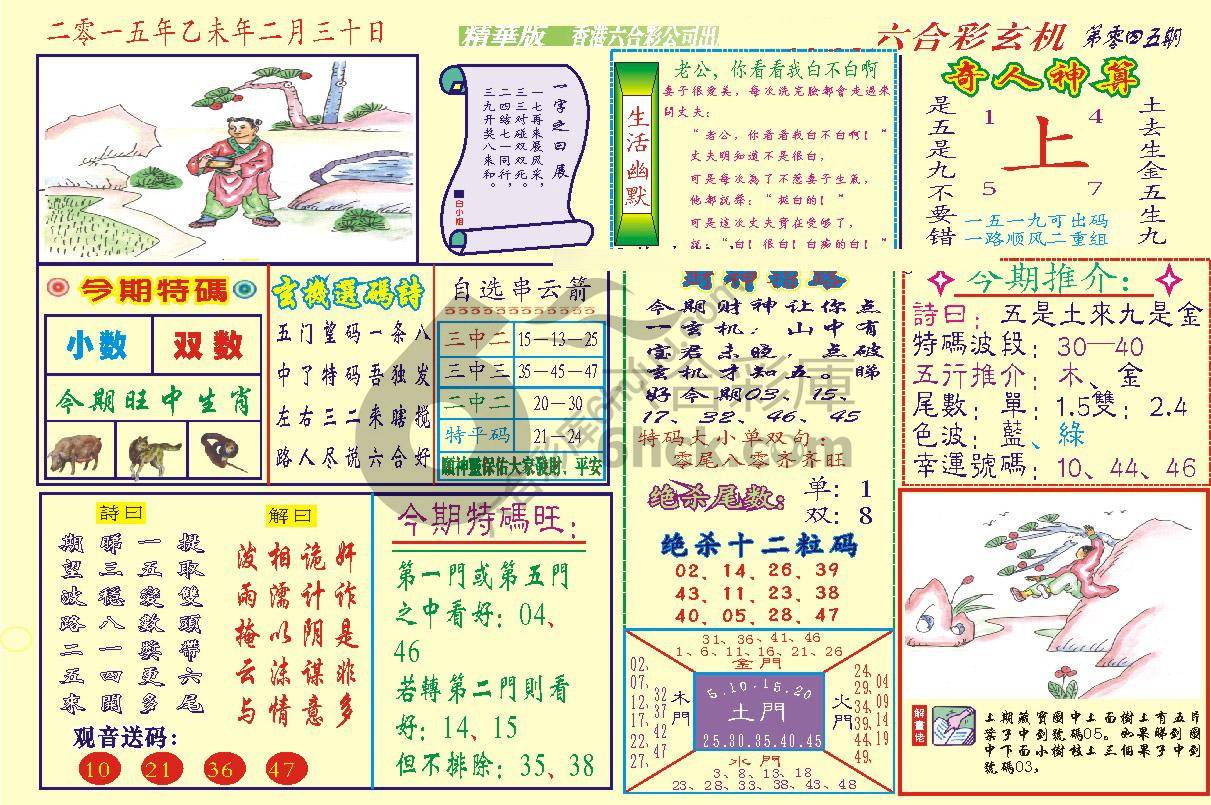 二零一五年乙未年二月三十日
精華版 香港六合彩公司出
六合彩玄机 第零四五期
一字之曰展
一七再来展风采，
三三对碰双双死。
二四晓七一同行，
三九开奖八来和。
白小姐
生活幽默
老公，你看看我白不白啊
妻子很爱美，每次洗完臉都會走過來
問丈夫：
“老公，你看看我白不白啊！”
丈夫明知道不是很白，
可是每次為了不惹妻子生氣，
他都説聲：“挺白的！”
可是這次丈夫實在受够了，
説：“白！很白！白癡的白！”
奇人神算
是五是九不要错
1 4
上
5 7
土去生金五生九
一五一九可出码
一路顺风二重组
今期特碼
小数 双数
今期旺中生肖
玄機選碼詩
五门望码一条八
中了特码吾独发
左右三二来瞎搅
路人尽说六合好
自选串云箭
三中二 15—13—25
三中三 35—45—47
二中二 20—30
特平码 21—24
願神靈保佑大家發財、平安
今期财神让你点
一玄机：山中有
宝君未晓，点破
玄机才知五。睇
好今期03、15、
17、32、46、45
特码大小单双句：
零尾八零齐齐旺
绝杀尾数：
单：1
双：8
绝杀十二粒码
02、14、26、39
43、11、23、38
40、05、28、47
今期推介：
詩曰：五是土來九是金
特碼波段：30—40
五行推介：木、金
尾數：單：1.5雙：2.4
色波：藍、綠
幸運號碼：10、44、46
詩曰
提取雙頭帶六尾
一五變數獎更多
睇三穩八一四開
期望波路二五來
解曰
奸诈是非多
诡计阴谋意
相濡以沫情
波雨掩云与
观音送码：
10 21 36 47
今期特碼旺：
第一門或第五門
之中看好：04、
46
若轉第二門則看
好：14、15
但不排除：35、38
31、36、41、46
1、6、11、16、21、26
金門
02、07、12、17、22、27、
32、37、42、47
木門
5.10.15.20
土門
25.30.35.40.45
火門
24、29、34、39、44、49、
04、09、14、19
水門
3、8、13、18
23、28、33、38、43、48
解畫佬
上期藏寶圖中上面樹上有五片
葉子中到號碼05。如果睇到圖
中下面小樹枝上三個果子中到
號碼03，
六合彩庫
6hck.com